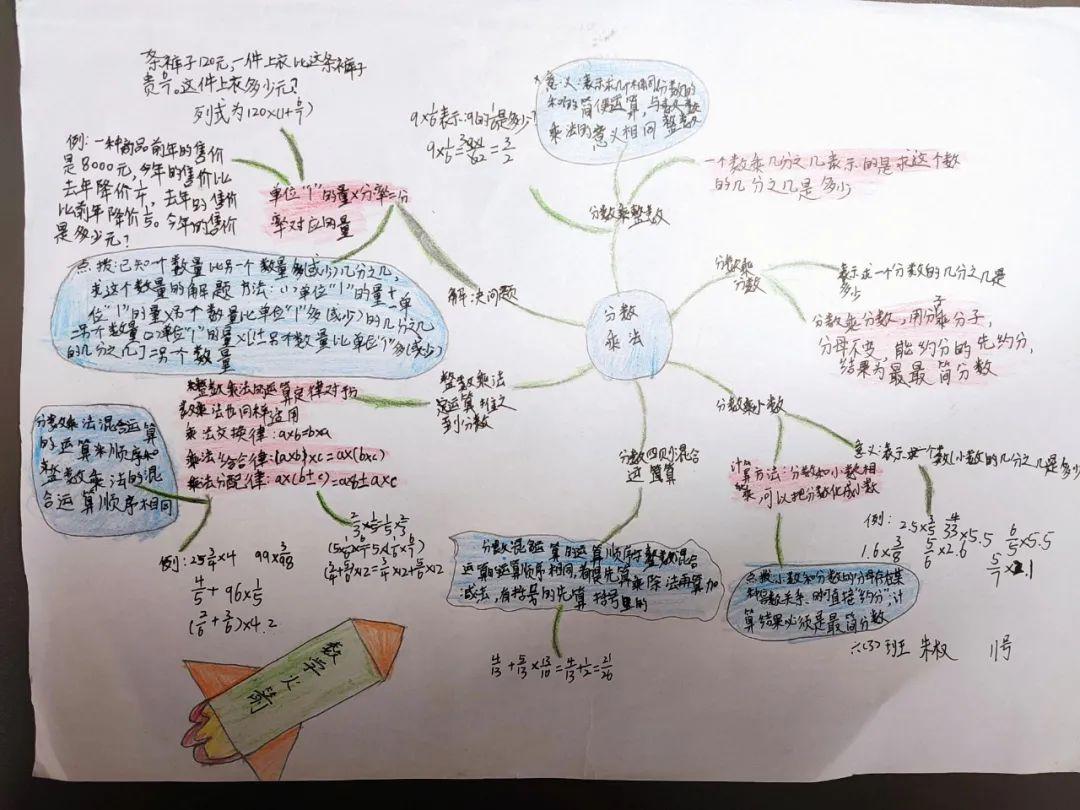 分数
乘法
意义:表示求几个相同分数的
和的简便运算,与整数
乘法的意义相同
分数乘整数
9×1/6表示:9的1/6是多少?
一个数乘几分之几表示的是求这个数
的几分之几是多少
分数乘
分数
表示求一个分数的几分之几是
多少
分数乘分数,用分子乘分子,
分母不变,能约分的先约分,
结果为最最简分数
分数乘小数
意义:表示
小数的几分之几是多少
计算方法:分数和小数相
乘,可以把分数化成小数
例:
2.5×3/5
×5.5
6/5×5.5
1.6×3/8
3/6×2.6
点拨:小数和分数的分母存在某
种倍数关系时,可直接“约分”,计
算结果必须是最简分数
分数四则混合
运算
分数混合运算的运算顺序和整数的混合
运算的运算顺序相同,都是先算乘除法再算加
减法,有括号的先算括号里的
4/13+5/13×13/10=4/13+1/2=21/26
整数乘法
定运算律推之
到分数
整数乘法的运算定律对于
分数乘法也同样适用
乘法交换律:a×b=b×a
乘法结合律:(a×b)×c=a×(b×c)
乘法分配律:
分数乘法混合运算
的运算顺序和
整数乘法的混
合运算顺序相同
例:25 3/4×4
99×3/98
4/5+96×1/5
(2/6+3/6)×4.2
2/3×1/5=1/5×2/3
解决问题
单位“1”的量×分率=分
率对应的量
条裤子120元,一件上衣比这条裤子
这件上衣多少元?
列式为120×
例:一种商品前年的售价
是8000元,今年的售价比
去年降价
去年的售价
比前年降价
今年的售价
是多少元?
点拨:已知一个数量比另一个数量多(或少)几分之几,
求这个数量的解题方法:(1)单位“1”的量±单
位“1”的量×另个数量比单位“1”多(或少)的几分之几
=另个数量
单位“1”的量×[1±另个数量比单位“1”多(或少)
的几分之几]=另个数量
数学火箭
六(3)班
11号